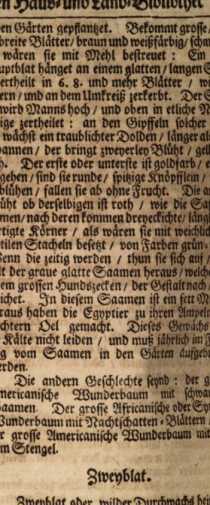 en Haus- und Land-Bibliothec
en Gärten gepflantzet. Bekommt grosse
breite Blätter/ braun und weißfärbig/
wären sie mit Mehl bestreuet : Ein
uptblat hänget an einem glatten/ langen S
ertheilt in 6. 8. und mehr Blätter /
ern/ und an dem Umkreiß zerkerbt. Der
wird Manns hoch/ und oben in etliche
ige zertheilet : an den Gipffeln solcher
wächst ein traublichter Dolden / länger als
annen/ der bringt zweyerley Blüht/
h. Der erste oder unterste ist goldfarb/
gehen/ sind sie runde/ spitzige Knöpfflein/
blühen/ fallen sie ab ohne Frucht. Die
üht ob derselbigen ist roth / wie die
men/ nach deren kommen dreyeckichte/
rtigte Körner/ als wären sie mit weichlich
tilen Stacheln besetzt/ von Farben grün-
Wenn die zeitig werden / thun sie sich auf/
lt der graue glatte Saamen heraus/ welch
em grossen Hundszecken / der Gestalt nach
ichet. In diesem Saamen ist ein fett
raus haben die Egyptier zu ihren Ampeln
chtern Oel gemacht. Dieses Gewächs
Kälte nicht leiden / und muß jährlich im
ng vom Saamen in den Gärten aufgeb
erden.
Die andern Geschlechte seynd : der
mericanische Wunderbaum mit schwa
aamen. Der grosse Africanische oder
Wunderbaum mit Nachtschatten-Blättern
r grosse Americanische Wunderbaum mit
m Stengel.
Zweyblat.
Zweyblat oder wilder Durchwachs